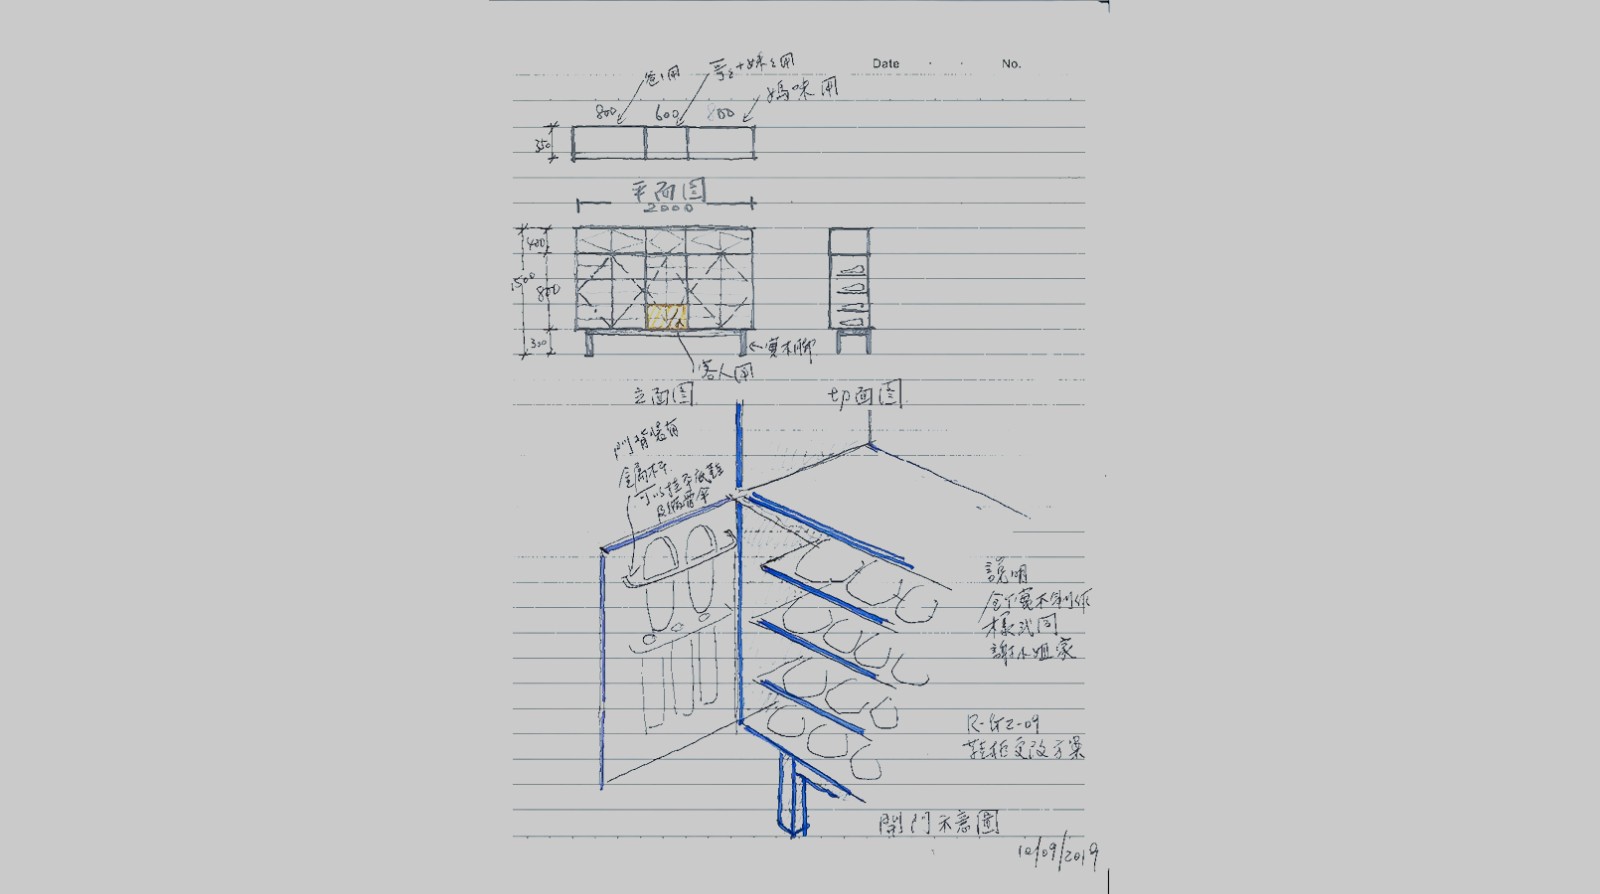 Date . . No.
爸爸用
哥哥+妹妹用
媽咪用
800 600 800
350
平面图
2000
400
1500
800
300
實木脚
客人用
立面图
切面图
門背裝有
金屬杆
可以挂平底鞋
及縮骨傘
說明
全下實木制作
樣式同
謝小姐家
R-922-09
鞋柜更改方案
開門示意圖
10/09/2019